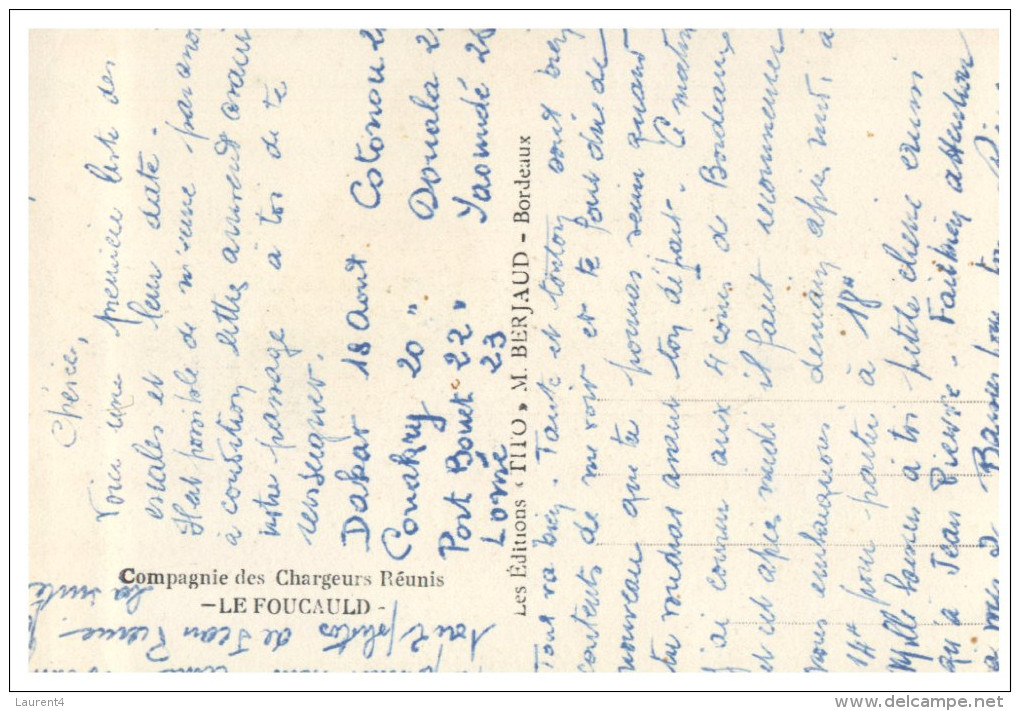 Chérie,
Voici une première liste des
escales et leur date.
Il est possible de m'écrire par avion
à condition lettre arrivent avant
notre passage à toi de te
renseigner.
Dakar 18 Aout Cotonou 2
Conakry 20 " Douala 2
Port Bouet 22 " Yaoundé 2
Lomé 23
Compagnie des Chargeurs Réunis
- LE FOUCAULD -
Les Éditions « TITO » M. BERJAUD - Bordeaux
Tout va bien. Tante et tonton sont bien
contents de me voir et te font dire de
nouveau que tu pourras venir quand
tu voudras avant ton départ. Ce matin
j'ai couru aux 4 coins de Bordeaux
et cet après midi il faut recommencer
nous embarquons demain après midi à
14H pour partir à 18H
Mille baisers à toi petite chérie ainsi
qu'à Jean Pierre. Faites attention
à vous 2 Baisers pour
La suite
photos de Jean Pierre
Laurent4
http://www.delcampe.net